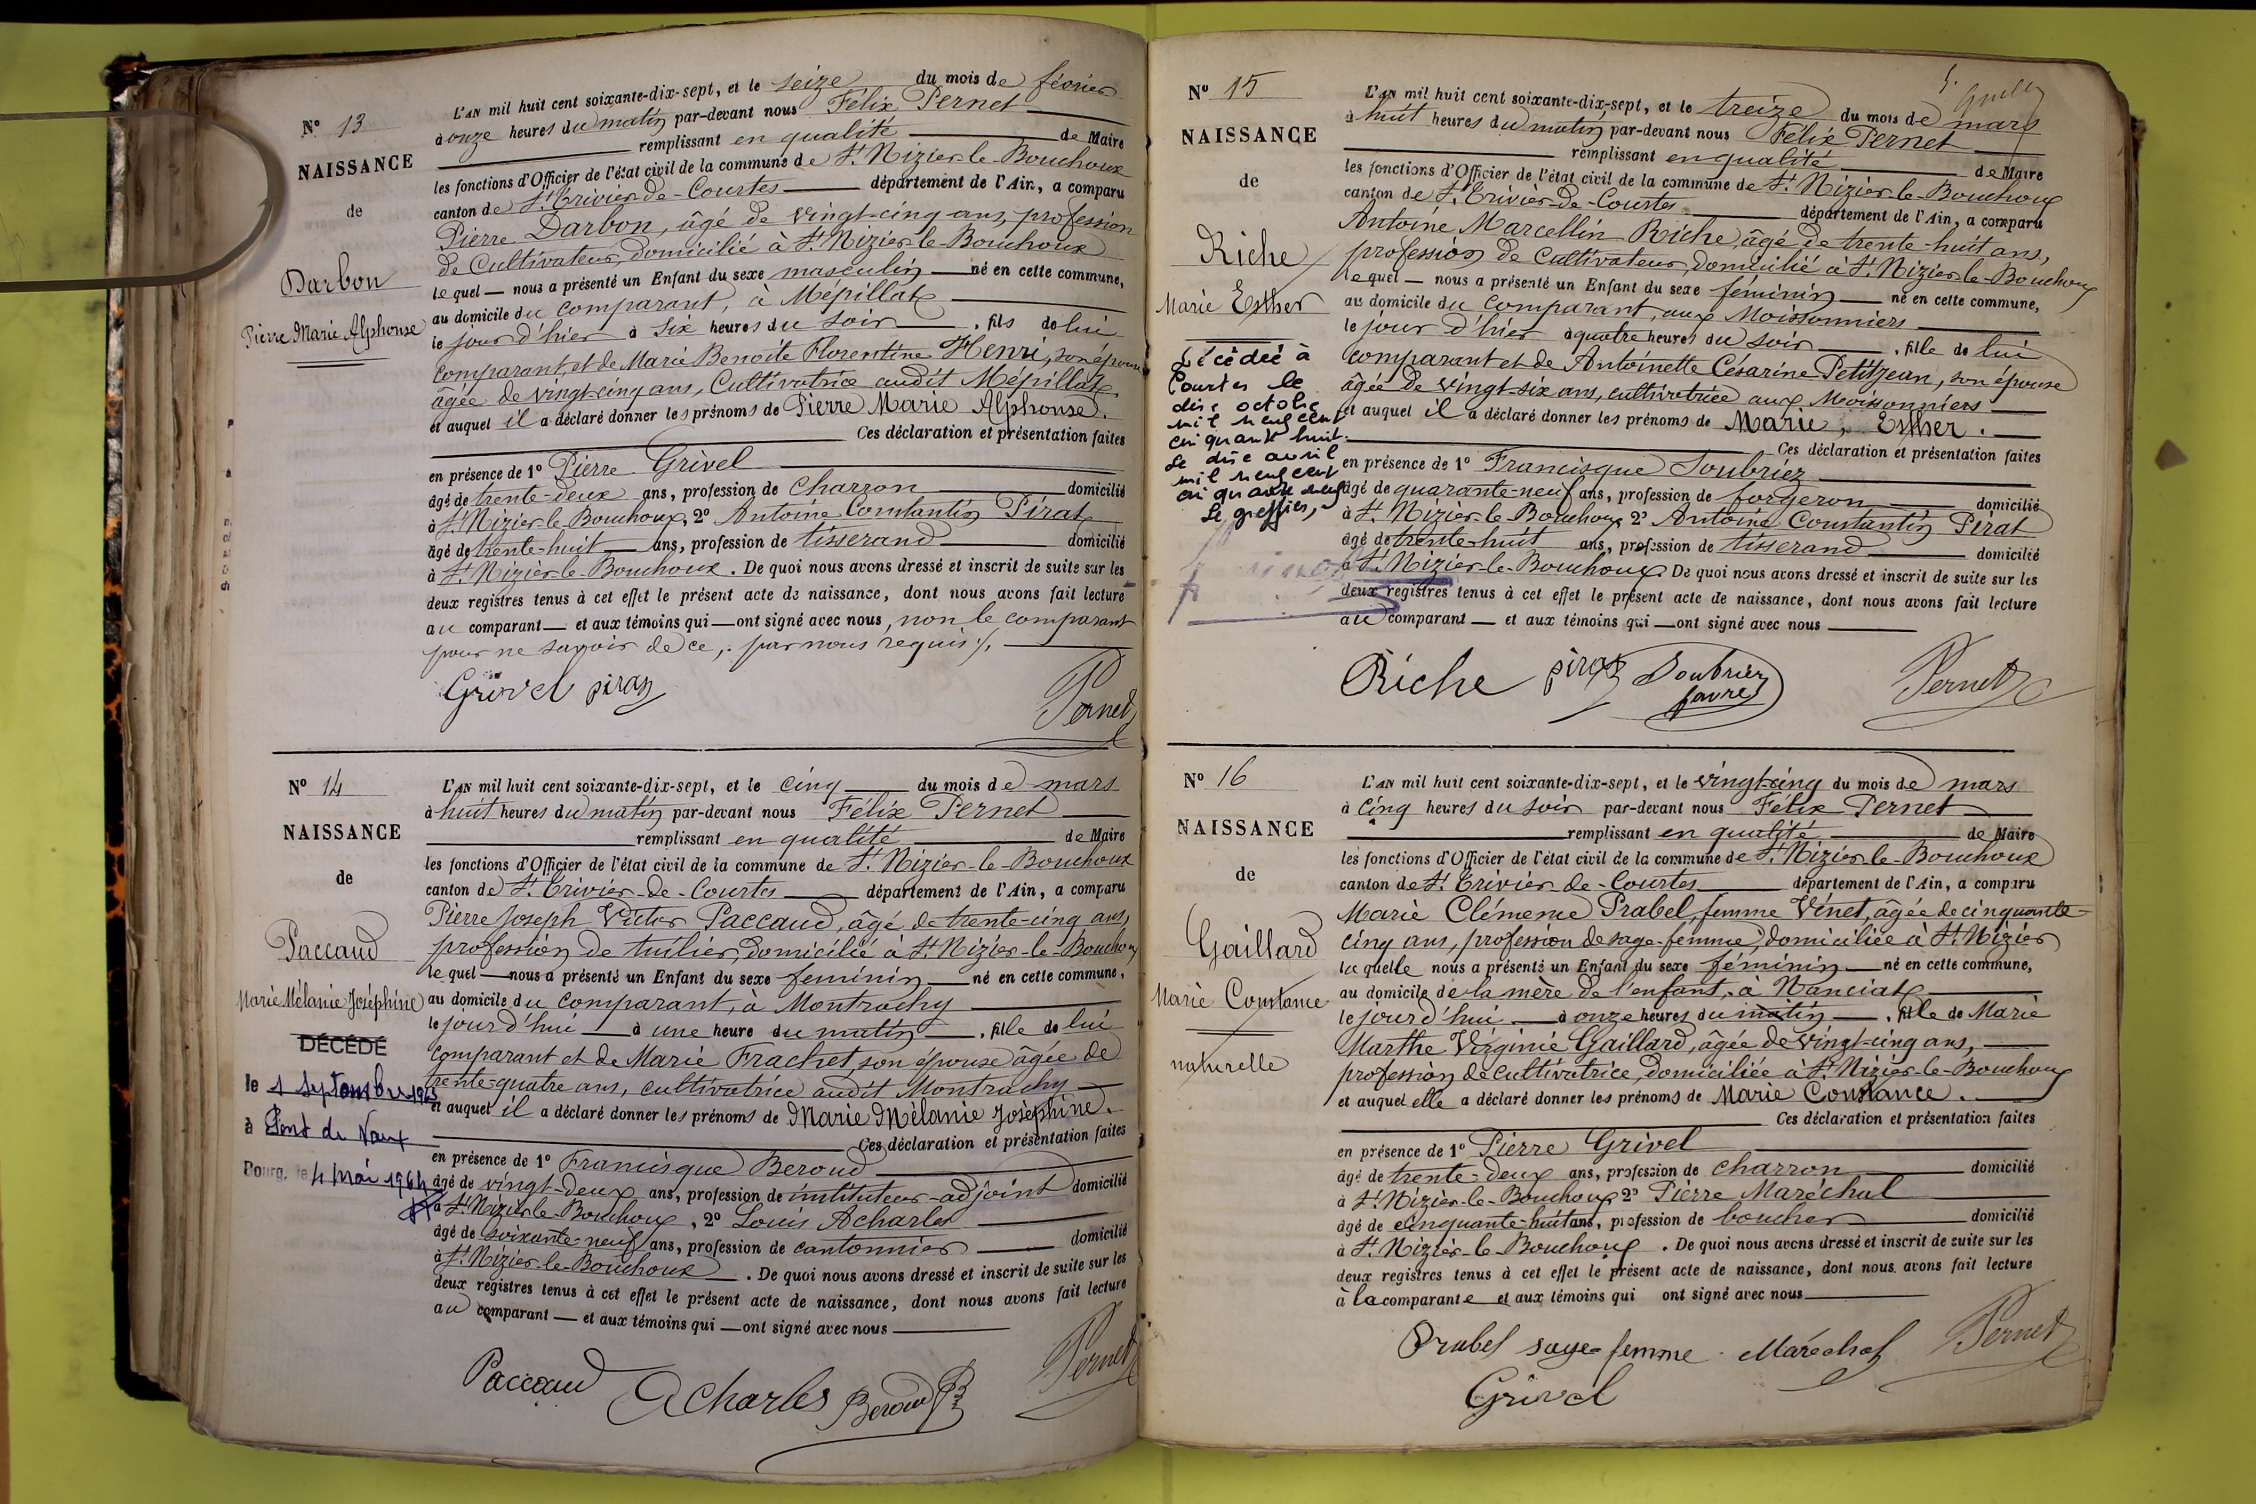 N° 13
NAISSANCE
de
Darbon
Pierre Marie Alphonse
L'AN mil huit cent soixante-dix-sept, et le seize du mois de février
à onze heures du matin par-devant nous Félix Pernet
remplissant en qualité de Maire
les fonctions d'Officier de l'état civil de la commune de St. Nizier-le-Bouchoux
canton de St. Trivier-de-Courtes département de l'Ain, a comparu
Pierre Darbon, âgé de vingt-cinq ans, profession
de Cultivateur, domicilié à St. Nizier-le-Bouchoux
lequel nous a présenté un Enfant du sexe masculin né en cette commune,
au domicile du comparant, à Mépillat
le jour d'hier à six heures du soir, fils de lui
comparant, et de Marie Benoite Florentine Henri, son épouse
âgée de vingt-cinq ans, Cultivatrice audit Mépillat
et auquel il a déclaré donner les prénoms de Pierre Marie Alphonse.
Ces déclaration et présentation faites
en présence de 1° Pierre Grivel
âgé de trente-deux ans, profession de charron domicilié
à St. Nizier-le-Bouchoux, 2° Antoine Constantin Pirat
âgé de trente-huit ans, profession de tisserand domicilié
à St. Nizier-le-Bouchoux. De quoi nous avons dressé et inscrit de suite sur les
deux registres tenus à cet effet le présent acte de naissance, dont nous avons fait lecture
au comparant et aux témoins qui ont signé avec nous, non le comparant
pour ne savoir de ce, par nous requis.
Grivel pirat
Pernet
N° 14
NAISSANCE
de
Paccaud
Marie Mélanie Joséphine
DÉCÉDÉ
le 1 Septembre 1963
à Pont de Vaux
Bourg, le 4 Mai 1964
L'AN mil huit cent soixante-dix-sept, et le cinq du mois de mars
à huit heures du matin par-devant nous Félix Pernet
remplissant en qualité de Maire
les fonctions d'Officier de l'état civil de la commune de St. Nizier-le-Bouchoux
canton de St. Trivier-de-Courtes département de l'Ain, a comparu
Pierre Joseph Victor Paccaud, âgé de trente-cinq ans,
profession de tuilier, domicilié à St. Nizier-le-Bouchoux
lequel nous a présenté un Enfant du sexe feminin né en cette commune,
au domicile du comparant, à Montrachy
le jour d'hui à une heure du matin, fille de lui
comparant et de Marie Frachet, son épouse âgée de
trente-quatre ans, cultivatrice audit Montrachy
et auquel il a déclaré donner les prénoms de Marie Mélanie Joséphine.
Ces déclaration et présentation faites
en présence de 1° Francisque Beroud
âgé de vingt-deux ans, profession de instituteur-adjoint domicilié
à St. Nizier-le-Bouchoux, 2° Louis Acharles
âgé de soixante-neuf ans, profession de cantonnier domicilié
à St. Nizier-le-Bouchoux. De quoi nous avons dressé et inscrit de suite sur les
deux registres tenus à cet effet le présent acte de naissance, dont nous avons fait lecture
au comparant et aux témoins qui ont signé avec nous
Paccaud Acharles Beroud
Pernet
N° 15
NAISSANCE
de
Riche
Marie Esther
Décédée à
Courtes le
dix octobre
mil neuf cent
cinquante huit.
Le dix avril
mil neuf cent
cinquante neuf
Le greffier,
L'AN mil huit cent soixante-dix-sept, et le treize du mois de mars
à huit heures du matin par-devant nous Félix Pernet
remplissant en qualité de Maire
les fonctions d'Officier de l'état civil de la commune de St. Nizier-le-Bouchoux
canton de St. Trivier-de-Courtes département de l'Ain, a comparu
Antoine Marcellin Riche, âgé de trente-huit ans,
profession de Cultivateur, domicilié à St. Nizier-le-Bouchoux
lequel nous a présenté un Enfant du sexe féminin né en cette commune,
au domicile du comparant, aux Moissonniers
le jour d'hier à quatre heures du soir, fille de lui
comparant et de Antoinette Césarine Petitjean, son épouse
âgée de vingt-six ans, cultivatrice aux Moissonniers
et auquel il a déclaré donner les prénoms de Marie, Esther.
Ces déclaration et présentation faites
en présence de 1° Francisque Soubrier
âgé de quarante-neuf ans, profession de forgeron domicilié
à St. Nizier-le-Bouchoux, 2° Antoine Constantin Pirat
âgé de trente-huit ans, profession de tisserand domicilié
à St. Nizier-le-Bouchoux. De quoi nous avons dressé et inscrit de suite sur les
deux registres tenus à cet effet le présent acte de naissance, dont nous avons fait lecture
au comparant et aux témoins qui ont signé avec nous
Riche pirat Soubrier
favre
Pernet
N° 16
NAISSANCE
de
Gaillard
Marie Constance
naturelle
L'AN mil huit cent soixante-dix-sept, et le vingt-cinq du mois de mars
à cinq heures du soir par-devant nous Félix Pernet
remplissant en qualité de Maire
les fonctions d'Officier de l'état civil de la commune de St. Nizier-le-Bouchoux
canton de St. Trivier-de-Courtes département de l'Ain, a comparu
Marie Clémence Prabel, femme Vénet, âgée de cinquante-
cinq ans, profession de sage-femme, domiciliée à St. Nizier
laquelle nous a présenté un Enfant du sexe féminin né en cette commune,
au domicile de la mère de l'enfant, à Nanciat
le jour d'hui à onze heures du matin, fille de Marie
Marthe Virginie Gaillard, âgée de vingt-cinq ans,
profession de cultivatrice, domiciliée à St. Nizier-le-Bouchoux
et auquel elle a déclaré donner les prénoms de Marie Constance.
Ces déclaration et présentation faites
en présence de 1° Pierre Grivel
âgé de trente-deux ans, profession de charron domicilié
à St. Nizier-le-Bouchoux 2° Pierre Maréchal
âgé de cinquante-huit ans, profession de boucher domicilié
à St. Nizier-le-Bouchoux. De quoi nous avons dressé et inscrit de suite sur les
deux registres tenus à cet effet le présent acte de naissance, dont nous avons fait lecture
à la comparante et aux témoins qui ont signé avec nous
Prabel sage femme Maréchal Pernet
Grivel